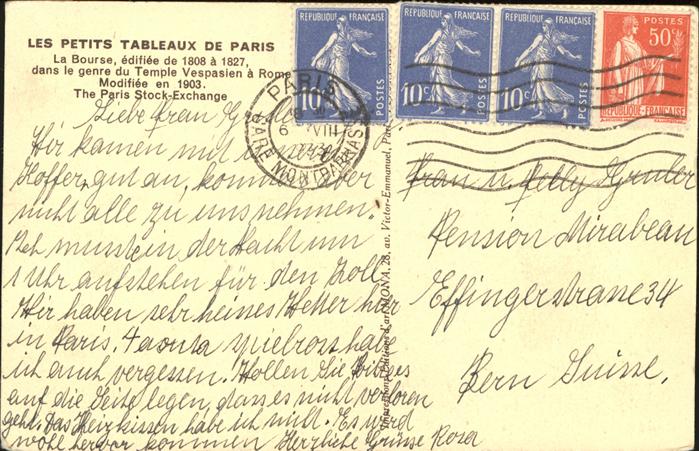 LES PETITS TABLEAUX DE PARIS
La Bourse, édifiée de 1808 à 1827,
dans le genre du Temple Vespasien à Rome
Modifiée en 1903.
The Paris Stock-Exchange
Liebe frau
Wir kamen mit unseren
Koffer gut an, konnten aber
nicht alle zu uns nehmen.
Ich musste in der Nacht um
1 Uhr aufstehen für den Zoll
Wir haben sehr heisses Wetter hier
in Paris. habe
ich auch vergessen! Wollen Sie bitte
auf die Seite legen, dass es nicht verloren
geht. Das Heizkissen habe ich nicht. Es wird
wohl hervor kommen Herzliche Grüsse Rosa
RÉPUBLIQUE FRANÇAISE
10c
POSTES
RÉPUBLIQUE FRANÇAISE
10c
POSTES
RÉPUBLIQUE FRANÇAISE
10c
POSTES
POSTES
50c
RÉPUBLIQUE-FRANÇAISE
PARIS
6 VIII
GARE MONTPARNASSE
28, av. Victor-Emmanuel,
Frau
Pension Mirabeau
Effingerstrasse 34
Bern Suisse.